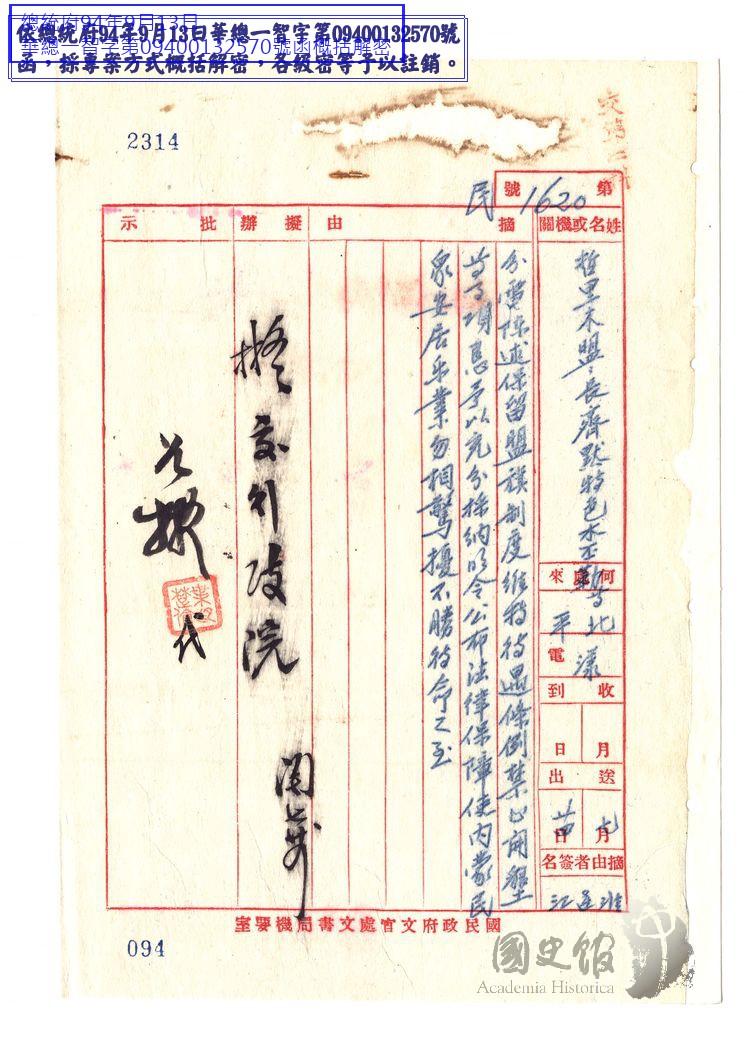 總統府94年9月13日
華總一智字第09400132570號函概括解密
依總統府94年9月13日華總一智字第09400132570號
函，採專案方式概括解密，各級密等予以註銷。
2314
第1620號
民
姓名或機關
摘由
擬辦
批示
哲里木盟盟長齊默特色木丕勒等
何處來
北平
漾電
收到
月
日
送出
月
日
摘由者簽名
江
分電陳述保留盟旗制度維持待遇條例禁止開墾
等事項懇予以充分採納明令公布法律保障使內蒙民
衆安居乐業勿相驚擾不勝待命之至
擬交行政院
代
國民政府文官處文書局機要室
094
國史館
Academia Historica